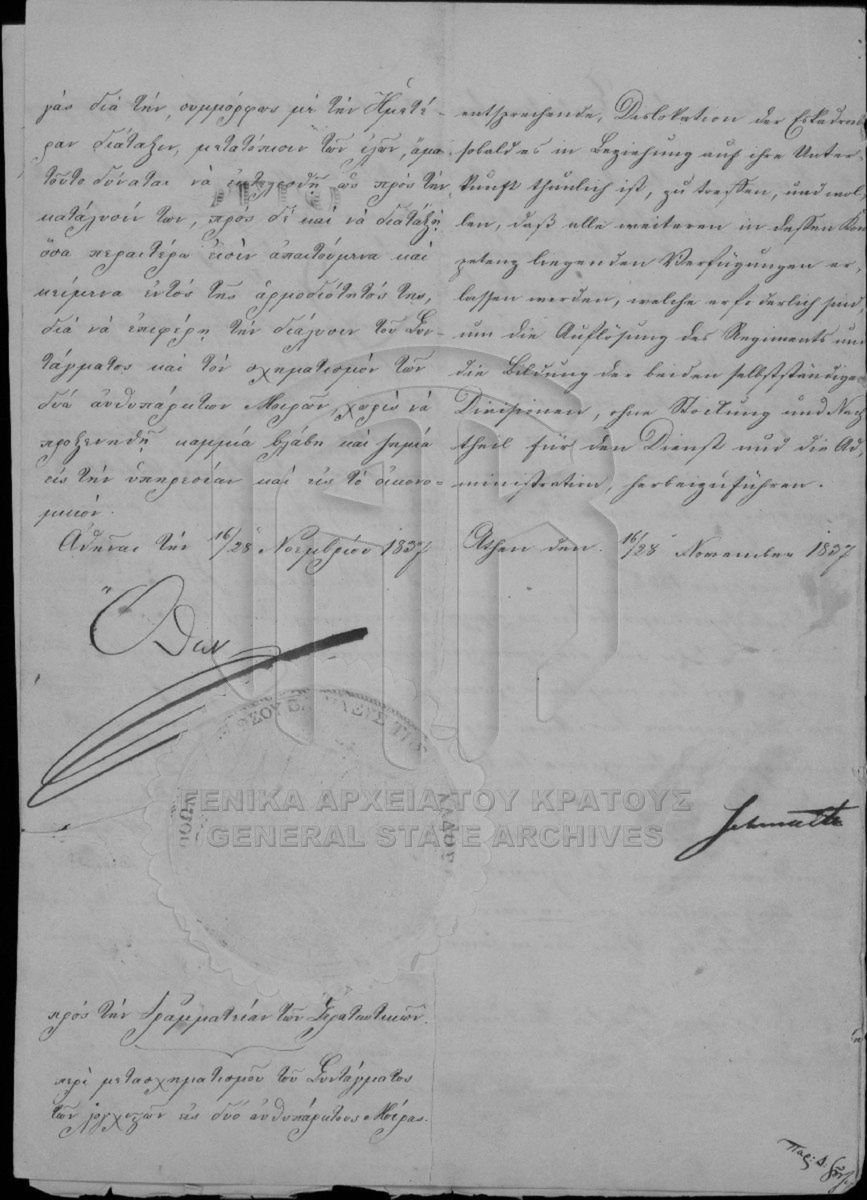 γὰς διὰ τὴν, συμμόρφως μὲ τὴν Ἡμετέ-
ραν διάταξιν, μετατόπισιν τῶν ἰλῶν, ἅμα
τοῦτο δύναται νὰ ἐκτελεσθῇ ὡς πρὸς τὴν
κατάλυσίν των, πρὸς δὲ καὶ νὰ διατάξῃ
ὅσα περαιτέρω εἰσὶν ἀπαιτούμενα καὶ
κείμενα ἐντὸς τῆς ἁρμοδιότητός της,
διὰ νὰ ἐπιφέρῃ τὴν διάλυσιν τοῦ Συν-
τάγματος καὶ τὸν σχηματισμὸν τῶν
δύο ἀνθυπάρκτων Μοιρῶν, χωρὶς νὰ
προξενηθῇ καμμία βλάβη καὶ ζημία
εἰς τὴν ὑπηρεσίαν καὶ εἰς τὸ οἰκονο-
μικόν.
Ἀθῆναι τὴν 16/28 Νοεμβρίου 1837
Ὄθων
entsprechende, Dislokation der Eskadronen
sobald es in Beziehung auf ihre Unter
kunft thunlich ist, zu treffen, und wol
len, daß alle weiteren in dessen Kom
petenz liegenden Verfügungen er
lassen werden, welche erforderlich sind,
um die Auflösung des Regiments und
die Bildung der beiden selbstständigen
Divisionen, ohne Stockung und Nach
theil für den Dienst und die Ad
ministration, herbeizuführen.
Athen den 16/28 November 1837
Schmaltz
ΘΕΟΥ ΒΑΣΙΛΕΥΣ ΤΗΣ
ΕΛΛΑΔΟΣ
ΟΘΩΝ
ΓΕΝΙΚΑ ΑΡΧΕΙΑ ΤΟΥ ΚΡΑΤΟΥΣ
GENERAL STATE ARCHIVES
πρὸς τὴν Γραμματείαν τῶν Στρατιωτικῶν.
περὶ μετασχηματισμοῦ τοῦ Συντάγματος
τῶν λογχιστῶν εἰς δύο ἀνθυπάρκτους Μοίρας.